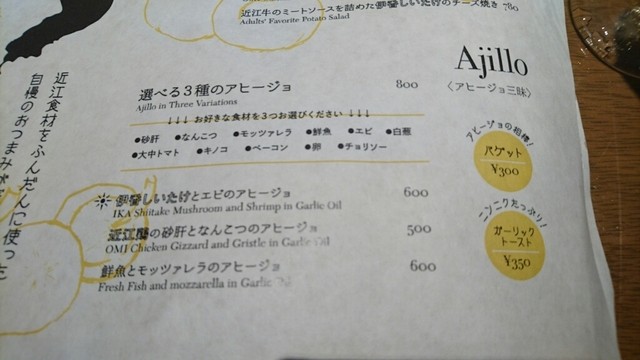 近江牛のミートソースを詰めた伊香しいたけのチーズ焼き 780
Adults' Favorite Potato Salad
Ajillo
〈アヒージョ三昧〉
選べる3種のアヒージョ 800
Ajillo in Three Variations
↓↓↓ お好きな食材を3つお選びください ↓↓↓
●砂肝 ●なんこつ ●モッツァレラ ●鮮魚 ●エビ ●白葱
●大中トマト ●キノコ ●ベーコン ●卵 ●チョリソー
伊香しいたけとエビのアヒージョ 600
IKA Shiitake Mushroom and Shrimp in Garlic Oil
近江鶏の砂肝となんこつのアヒージョ 500
OMI Chicken Gizzard and Gristle in Garlic Oil
鮮魚とモッツァレラのアヒージョ 600
Fresh Fish and mozzarella in Garlic Oil
アヒージョの相棒!
バゲット
¥300
ニンニクたっぷり!
ガーリック
トースト
¥350
近江食材をふんだんに使った
自慢のおつまみが